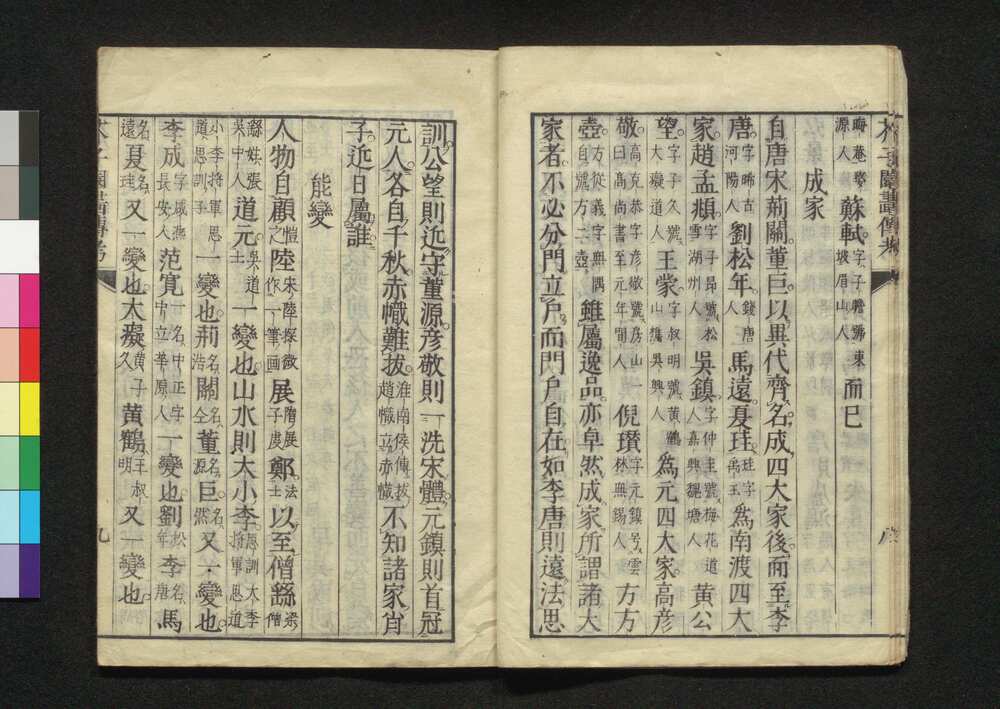 晦菴婺源人蘇軾字子瞻號東坡眉山人而已
成家
自唐宋荊關董巨以異代齊名成四大家後而至李
唐字晞古河陽人劉松年錢唐人馬遠夏珪珪字禹玉為南渡四大
家趙孟頫字子昂號松雪湖州人吳鎮字仲圭號梅花道人嘉興魏塘人黃公
望字子久號大癡道人王蒙字叔明號黃鶴山樵吳興人為元四大家高彥
敬高克恭字彥敬號房山一曰尚書至元年間人倪瓚字元鎮号雲林無錫人方方
壺方從義字無隅自號方壺雖屬逸品亦卓然成家所謂諸大
家者不必分門立戶而門戶自在如李唐則遠法思
訓公望則近守董源彥敬則一洗宋體元鎮則首冠
元人各自千秋赤幟難拔淮南侯傳拔趙幟立赤幟不知諸家肖
子近日屬誰
能變
人物自顧愷之陸宋陸探微作一筆画展隋展子虔鄭法士以至僧繇梁僧
繇姓張吳中人道元吳道士一變也山水則大小李思訓大李將軍思道
小李將軍思道思訓子一變也荊名浩關名仝董名源巨名然又一變也
李成字咸熙長安人范寬一名中正字中立華原人一變也劉松年李名唐馬
名遠夏名珪又一變也大癡黃子久黃鶴王叔明又一變也
九